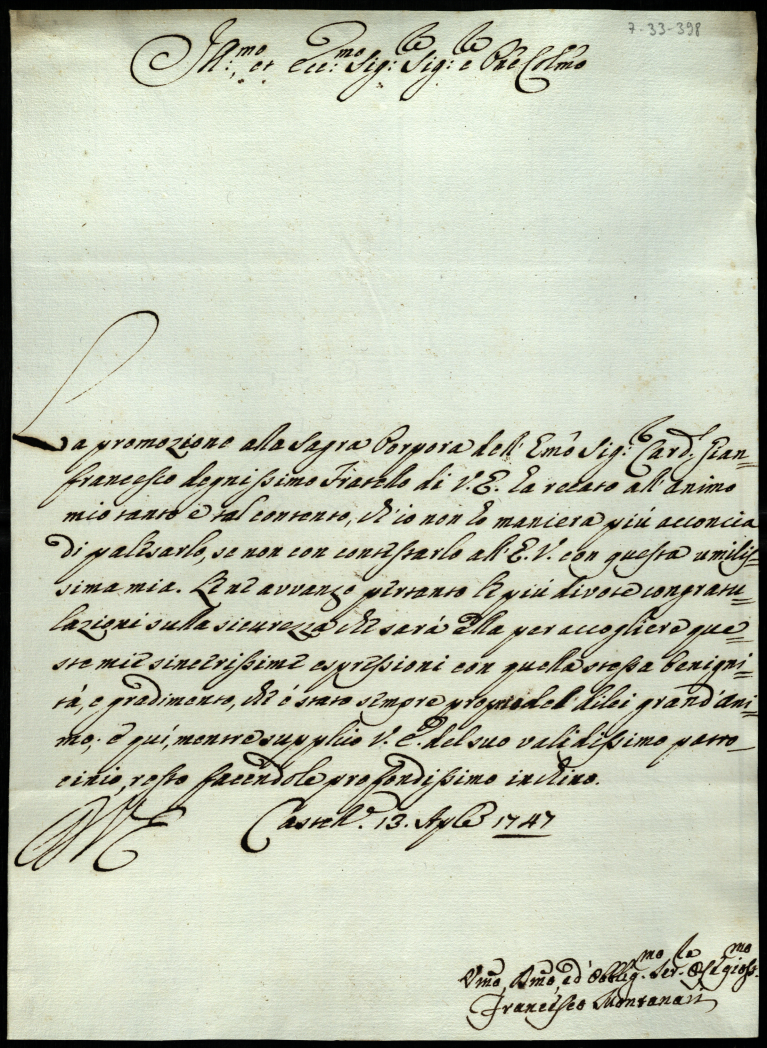 7-33-398
Ill:mo et Ecc:mo Sig:re Sig:re e Pne Colmo
La promozione alla Sagra Porpora dell' Emo Sig:r Card. Gian=
francesco degnissimo Fratello di V.E. ha recato all' animo
mio tanto e tal contento, ch' io non ho maniera più acconcia
di palesarlo, se non con contestarlo all' E.V. con questa umilis=
sima mia. Le ne avvanzo pertanto le più divote congratu=
lazioni sulla sicurezza che sarà Ella per accogliere que=
ste mie sincerissime espressioni con quella stessa benigni=
tà, e gradimento, che è stato sempre proprio del di lei grand' ani=
mo; e quì, mentre supplico V.E. del suo validissimo patro=
cinio, resto facendole profondissimo inchino.
VE Castello. 13. Aple 1747
Umo, Dmo, ed Obblig.mo Ser.re
Francesco Montanari